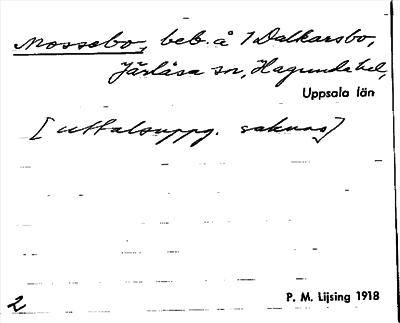 Mossebo, beb. å 1 Dalkarsbo,
Järlåsa sn, Hagunda hd,
Uppsala län
[uttalsuppg. saknas]
2
P. M. Lijsing 1918